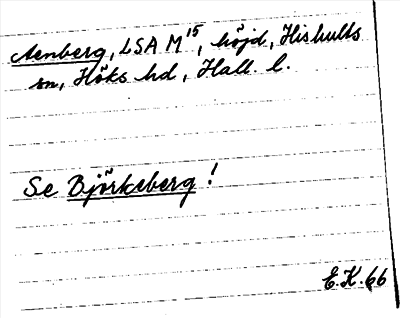 Aenberg, LSA M15, höjd, Hishults
sn, Höks hd, Hall. l.
Se Björkeberg!
E.K. 66